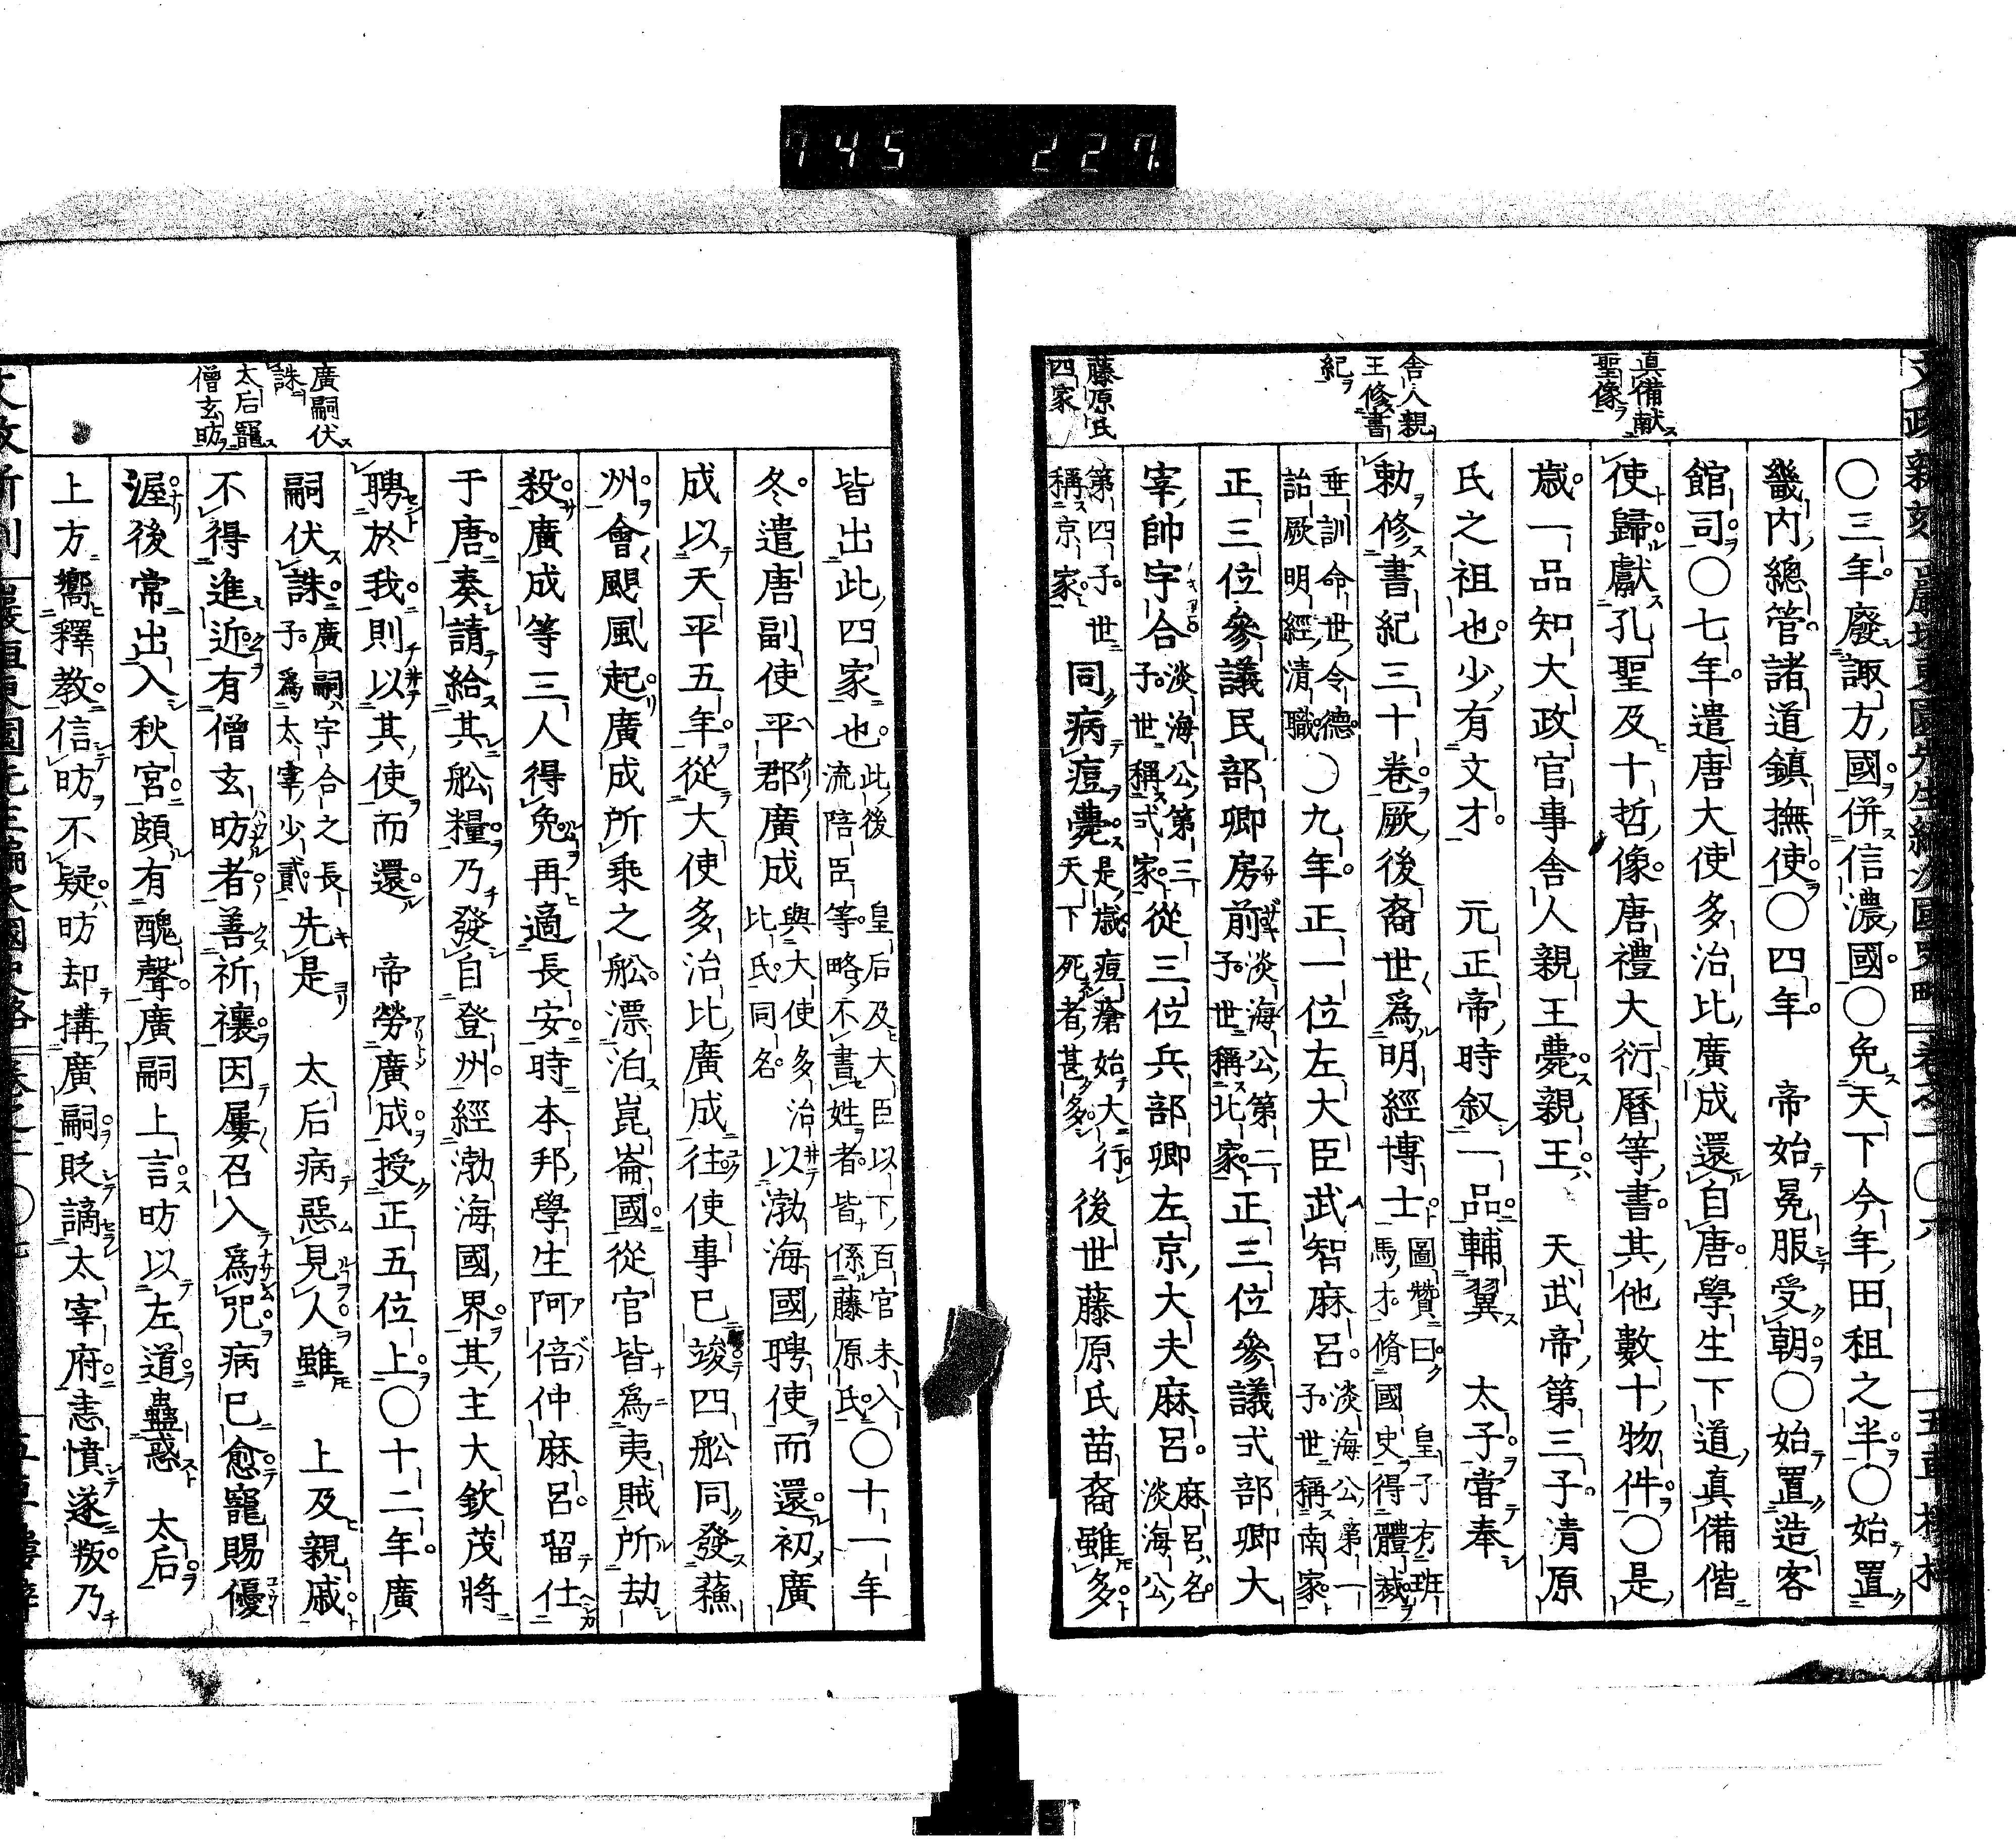 745 227.
真備献
聖像
舎人親
王修書
紀
藤原氏
四家
〇三年廢諏方國併信濃國〇免天下今年田租之半〇始置
畿内總管諸道鎮撫使〇四年 帝始冕服受朝〇始置造客
館司〇七年遣唐大使多治比廣成還自唐學生下道真備偕
使歸獻孔聖及十哲像唐禮大衍曆等書其他數十物件〇是
歳一品知大政官事舎人親王薨親王 天武帝第三子清原
氏之祖也少有文才 元正帝時叙一品輔翼 太子嘗奉
勅修書紀三十卷厥後裔世爲明經博士圖贊曰 皇子有班馬才脩國史得體裁
垂訓命世令德詒厥明經清職〇九年正一位左大臣武智麻呂淡海公第一子世稱南家
正三位參議民部卿房前淡海公第二子世稱北家正三位參議式部卿大
宰帥宇合淡海公第三子世稱式家從三位兵部卿左京大夫麻呂麻呂名淡海公
第四子世稱京家同病痘薨是歳痘瘡始大行天下死者甚多後世藤原氏苗裔雖多
廣嗣伏
誅
太后寵
僧玄昉
皆出此四家也此後 皇后及大臣以下百官未入流陪臣等略不書姓者皆係藤原氏〇十一年
冬遣唐副使平郡廣成與大使多治比氏同名以渤海國聘使而還初廣
成以天平五年從大使多治比廣成往使事已竣四舩同發蘓
州會颶風起廣成所乗之舩漂泊崑崙國從官皆爲夷賊所劫
殺廣成等三人得免再適長安時本邦學生阿倍仲麻呂留仕
于唐奏請給其舩糧乃發自登州經渤海國界其主大欽茂將
聘於我則以其使而還 帝勞廣成授正五位上〇十二年廣
嗣伏誅廣嗣宇合之長子爲太宰少貳先是 太后病惡見人雖 上及親戚
不得進近有僧玄昉者善祈禳因屢召入爲咒病已愈寵賜優
渥後常出入秋宮頗有醜聲廣嗣上言昉以左道蠱惑 太后
上方嚮釋教信昉不疑昉却搆廣嗣貶謫太宰府恚憤遂叛乃